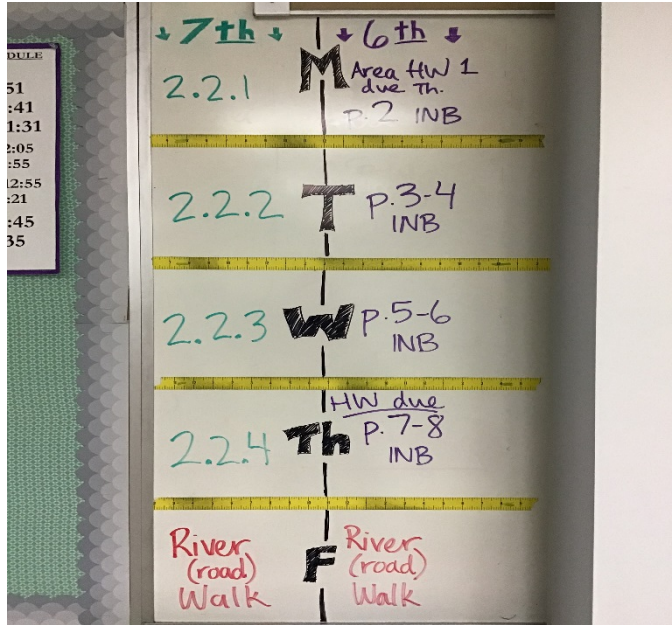 DULE
51
:41
1:31
2:05
:55
12:55
:21
:45
35
↓ 7th ↓
↓ 6th ↓
2.2.1
M
Area HW 1
due Th.
p.2 INB
2.2.2
T
p.3-4
INB
2.2.3
W
p.5-6
INB
2.2.4
Th
HW due
p.7-8
INB
River
(road)
Walk
F
River
(road)
Walk